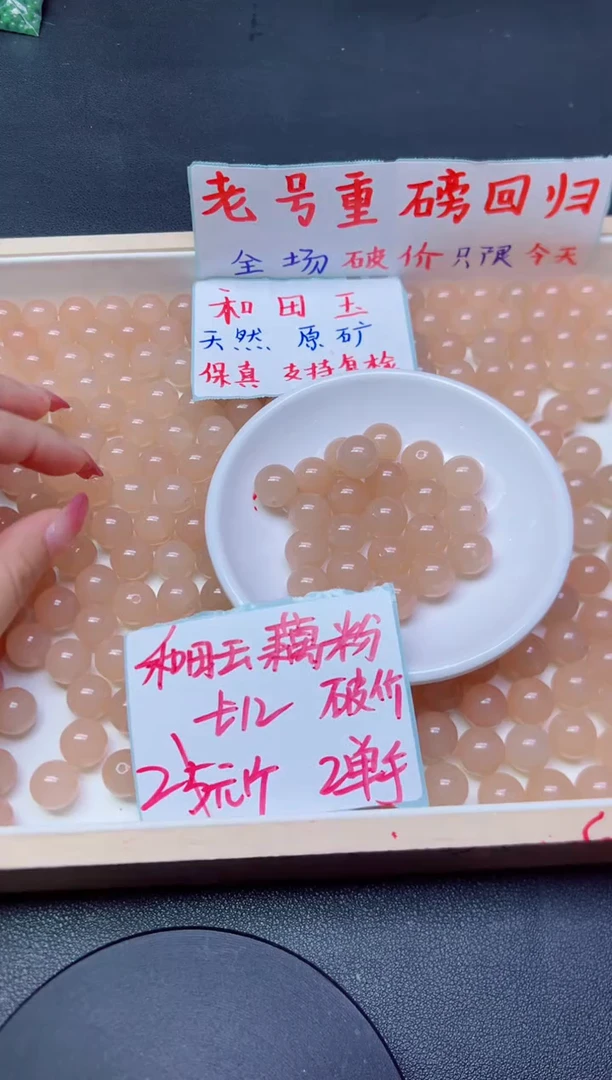 老号重磅回归
全场破价只限今天
和田玉
天然 原矿
保真 支持复检
和田玉藕粉
破价
2元/个 2单手